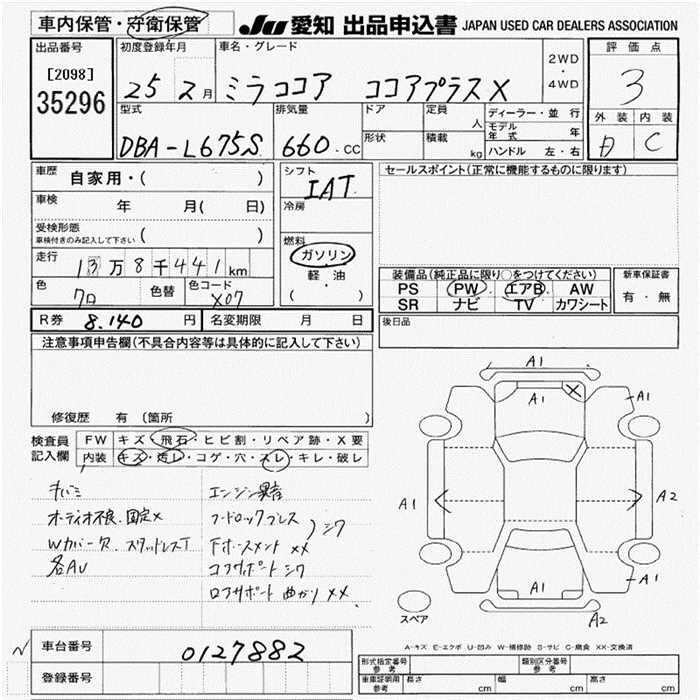 車内保管・守衛保管
JU 愛知 出品申込書 JAPAN USED CAR DEALERS ASSOCIATION
出品番号
[2098]
35296
初度登録年月
25 2月
車名・グレード
ミラココア ココアプラスX
2WD
・
4WD
評価点
3
外装 内装
C
型式
DBA-L675S
排気量
660.CC
ドア
形状
定員
人
積載
kg
ディーラー・並行
モデル年式 年
ハンドル 左・右
車歴
自家用・( )
車検
年 月( 日)
受検形態
車検付きのみ記入して下さい ( )
走行
13万8千441km
色
クロ
色替
色コード
X07
シフト
IAT
冷房
燃料
ガソリン
軽油
( )
セールスポイント(正常に機能するものに限ります)
装備品(純正品に限り○をつけてください)
PS PW エアB AW
SR ナビ TV カワシート
新車保証書
有・無
後日品
R券 8.140 円
名変期限 月 日
注意事項申告欄(不具合内容等は具体的に記入して下さい)
修復歴 有 (箇所 )
検査員
記入欄
FW キズ・飛石・ヒビ割・リペア跡・X要
内装 キズ・汚レ・コゲ・穴・スレ・キレ・破レ
キバミ
オーディオ不良.固定×
Wカバー欠.スタッドレスT
各AU
エンジン異音
フードロックブレス
シワ
コアサポートシワ
ロアサポート曲がり ××
A1
A1
A1
A1
A1
A2
A1
A1
A2
スペア
A-キズ E-エクボ U-凹み W-補修跡 S-サビ C-腐食 XX-交換済
車台番号
0127882
登録番号
型式指定番号
参考
類別区分番号
参考
車庫証明用
参考
長さ cm
幅 cm
高さ cm